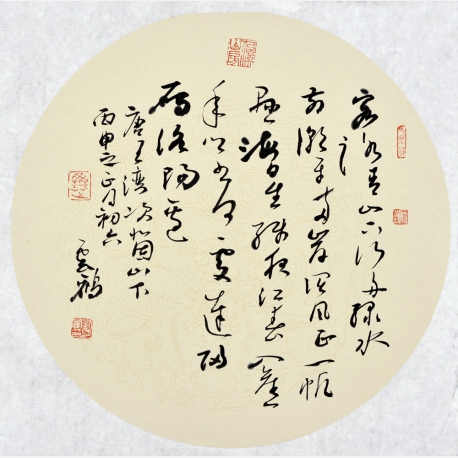 客路青山下行舟绿水
前潮平两岸阔风正一帆
悬海日生残夜江春入旧
年乡书何处达归
雁洛阳边
唐王湾次北固山下
丙申之正月初六
云鹤